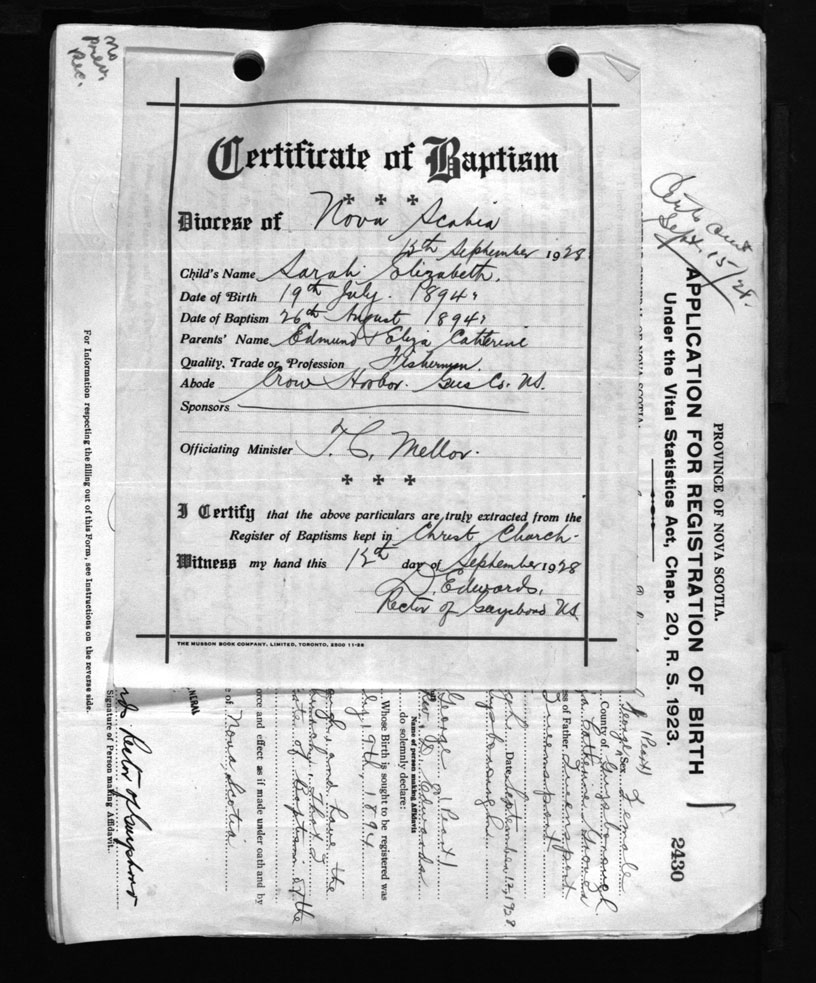 no
prev.
Rec.
Certificate of Baptism
Diocese of Nova Scotia
12th September 1928
Child's Name Sarah Elizabeth.
Date of Birth 19th July. 1894.
Date of Baptism 26th August 1894.
Parents' Name Edmund & Eliza Catherine
Quality, Trade or Profession Fisherman.
Abode Crow Harbor. Guy Co. NS.
Sponsors
Officiating Minister T. C. Mellor.
I Certify that the above particulars are truly extracted from the
Register of Baptisms kept in Christ Church.
Witness my hand this 12th day of September 1928
D. Edwards,
Rector of Guysboro NS
THE MUSSON BOOK COMPANY, LIMITED, TORONTO, 2500 11-26
Sept. 15/28.
PROVINCE OF NOVA SCOTIA.
APPLICATION FOR REGISTRATION OF BIRTH
Under the Vital Statistics Act, Chap. 20, R. S. 1923.
2430
George Sex Female
County of Guysborough
Catherine George
of Father Queensport
Queensport
Date September 12, 1928
Guysborough
George (Peart)
Rev. D. Edwards
Name of person making Affidavit
do solemnly declare:
Whose Birth is sought to be registered was
July 19th, 1894
and have the
That
of Baptism of the
force and effect as if made under oath and by
of Nova Scotia
Rector of Guysboro
Signature of Person making Affidavit.
For Information respecting the filling out of this Form, see Instructions on the reverse side.